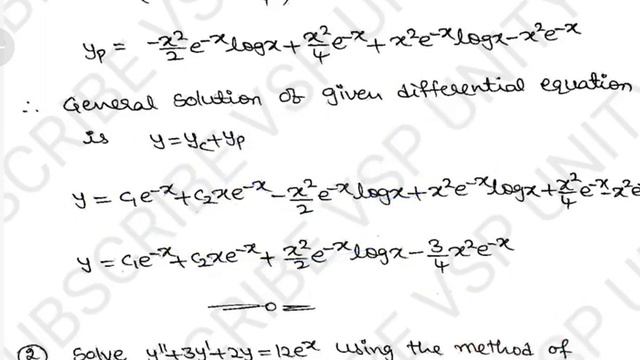 y_p = -x²/2 e^-x logx + x²/4 e^-x + x²e^-x logx - x²e^-x
∴ General solution of given differential equation
is y = y_c + y_p
y = c₁e^-x + c₂xe^-x - x²/2 e^-x logx + x²e^-x logx + x²/4 e^-x - x²e
y = c₁e^-x + c₂xe^-x + x²/2 e^-x logx - 3/4 x²e^-x
② Solve y'' + 3y' + 2y = 12e^x using the method of
SUBSCRIBE VSP UNITY